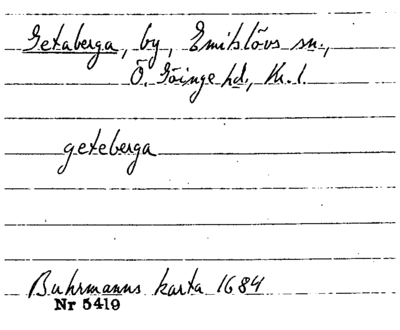 Getaberga, by, Emitslövs sn.,
Ö. Göinge hd., Kr. l.
geteberga
Buhrmanns karta 1684
Nr 5419